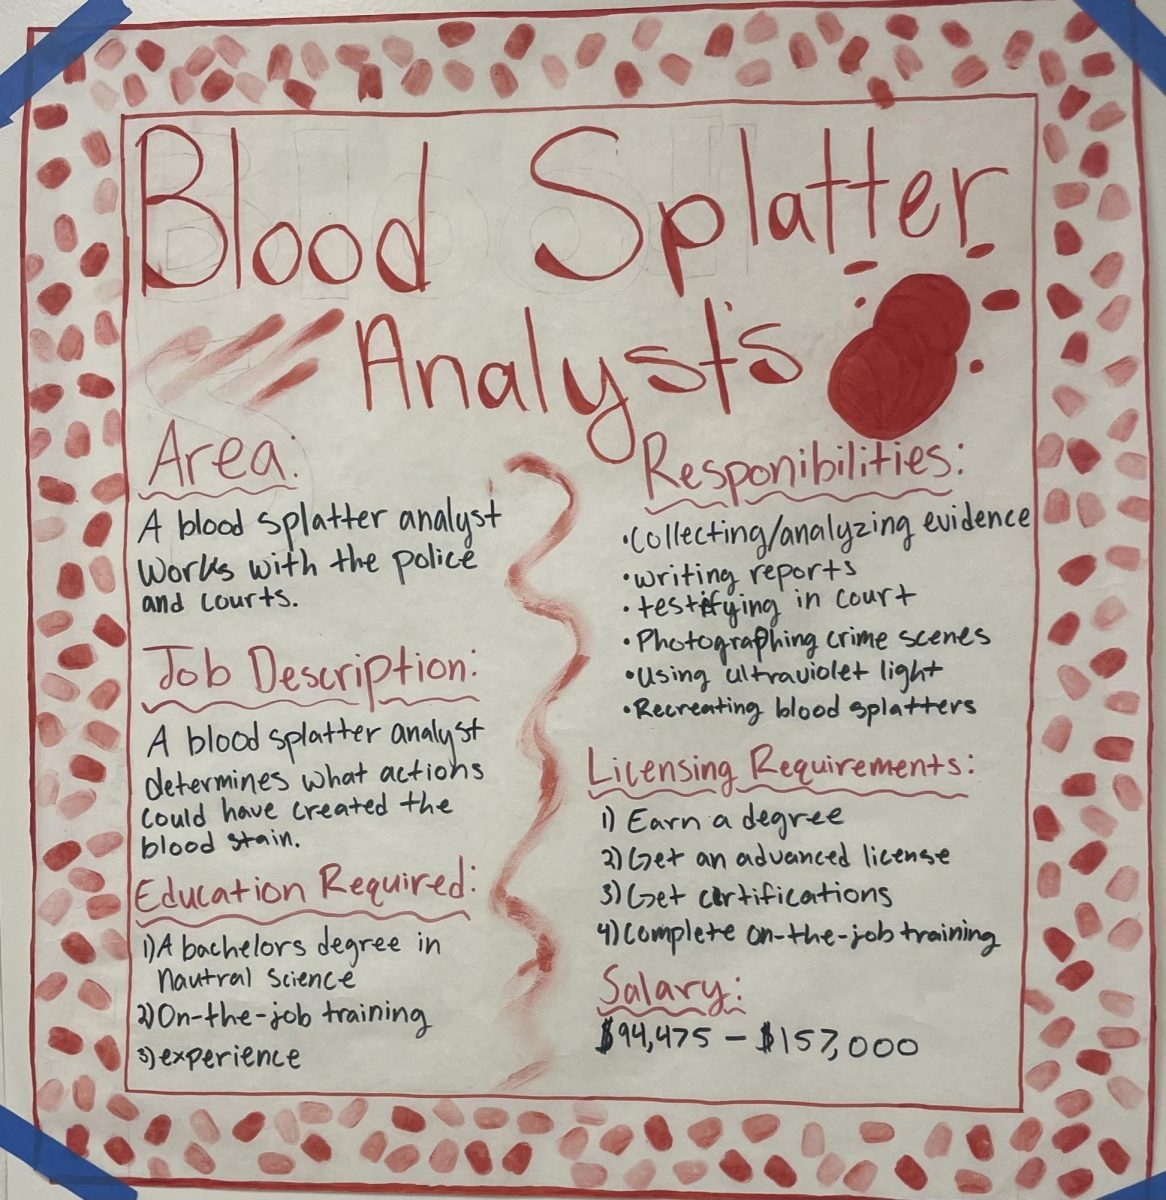 Blood Splatter
Analyst's
Area:
A blood splatter analyst
works with the police
and courts.
Job Description:
A blood splatter analyst
determines what actions
could have created the
blood stain.
Education Required:
1) A bachelors degree in
nautral science
2) On-the-job training
3) experience
Responibilities:
• Collecting/analyzing evidence
• writing reports
• testifying in court
• Photographing crime scenes
• Using ultraviolet light
• Recreating blood splatters
Licensing Requirements:
1) Earn a degree
2) Get an advanced license
3) Get certifications
4) complete on-the-job training
Salary:
$94,475 - $157,000